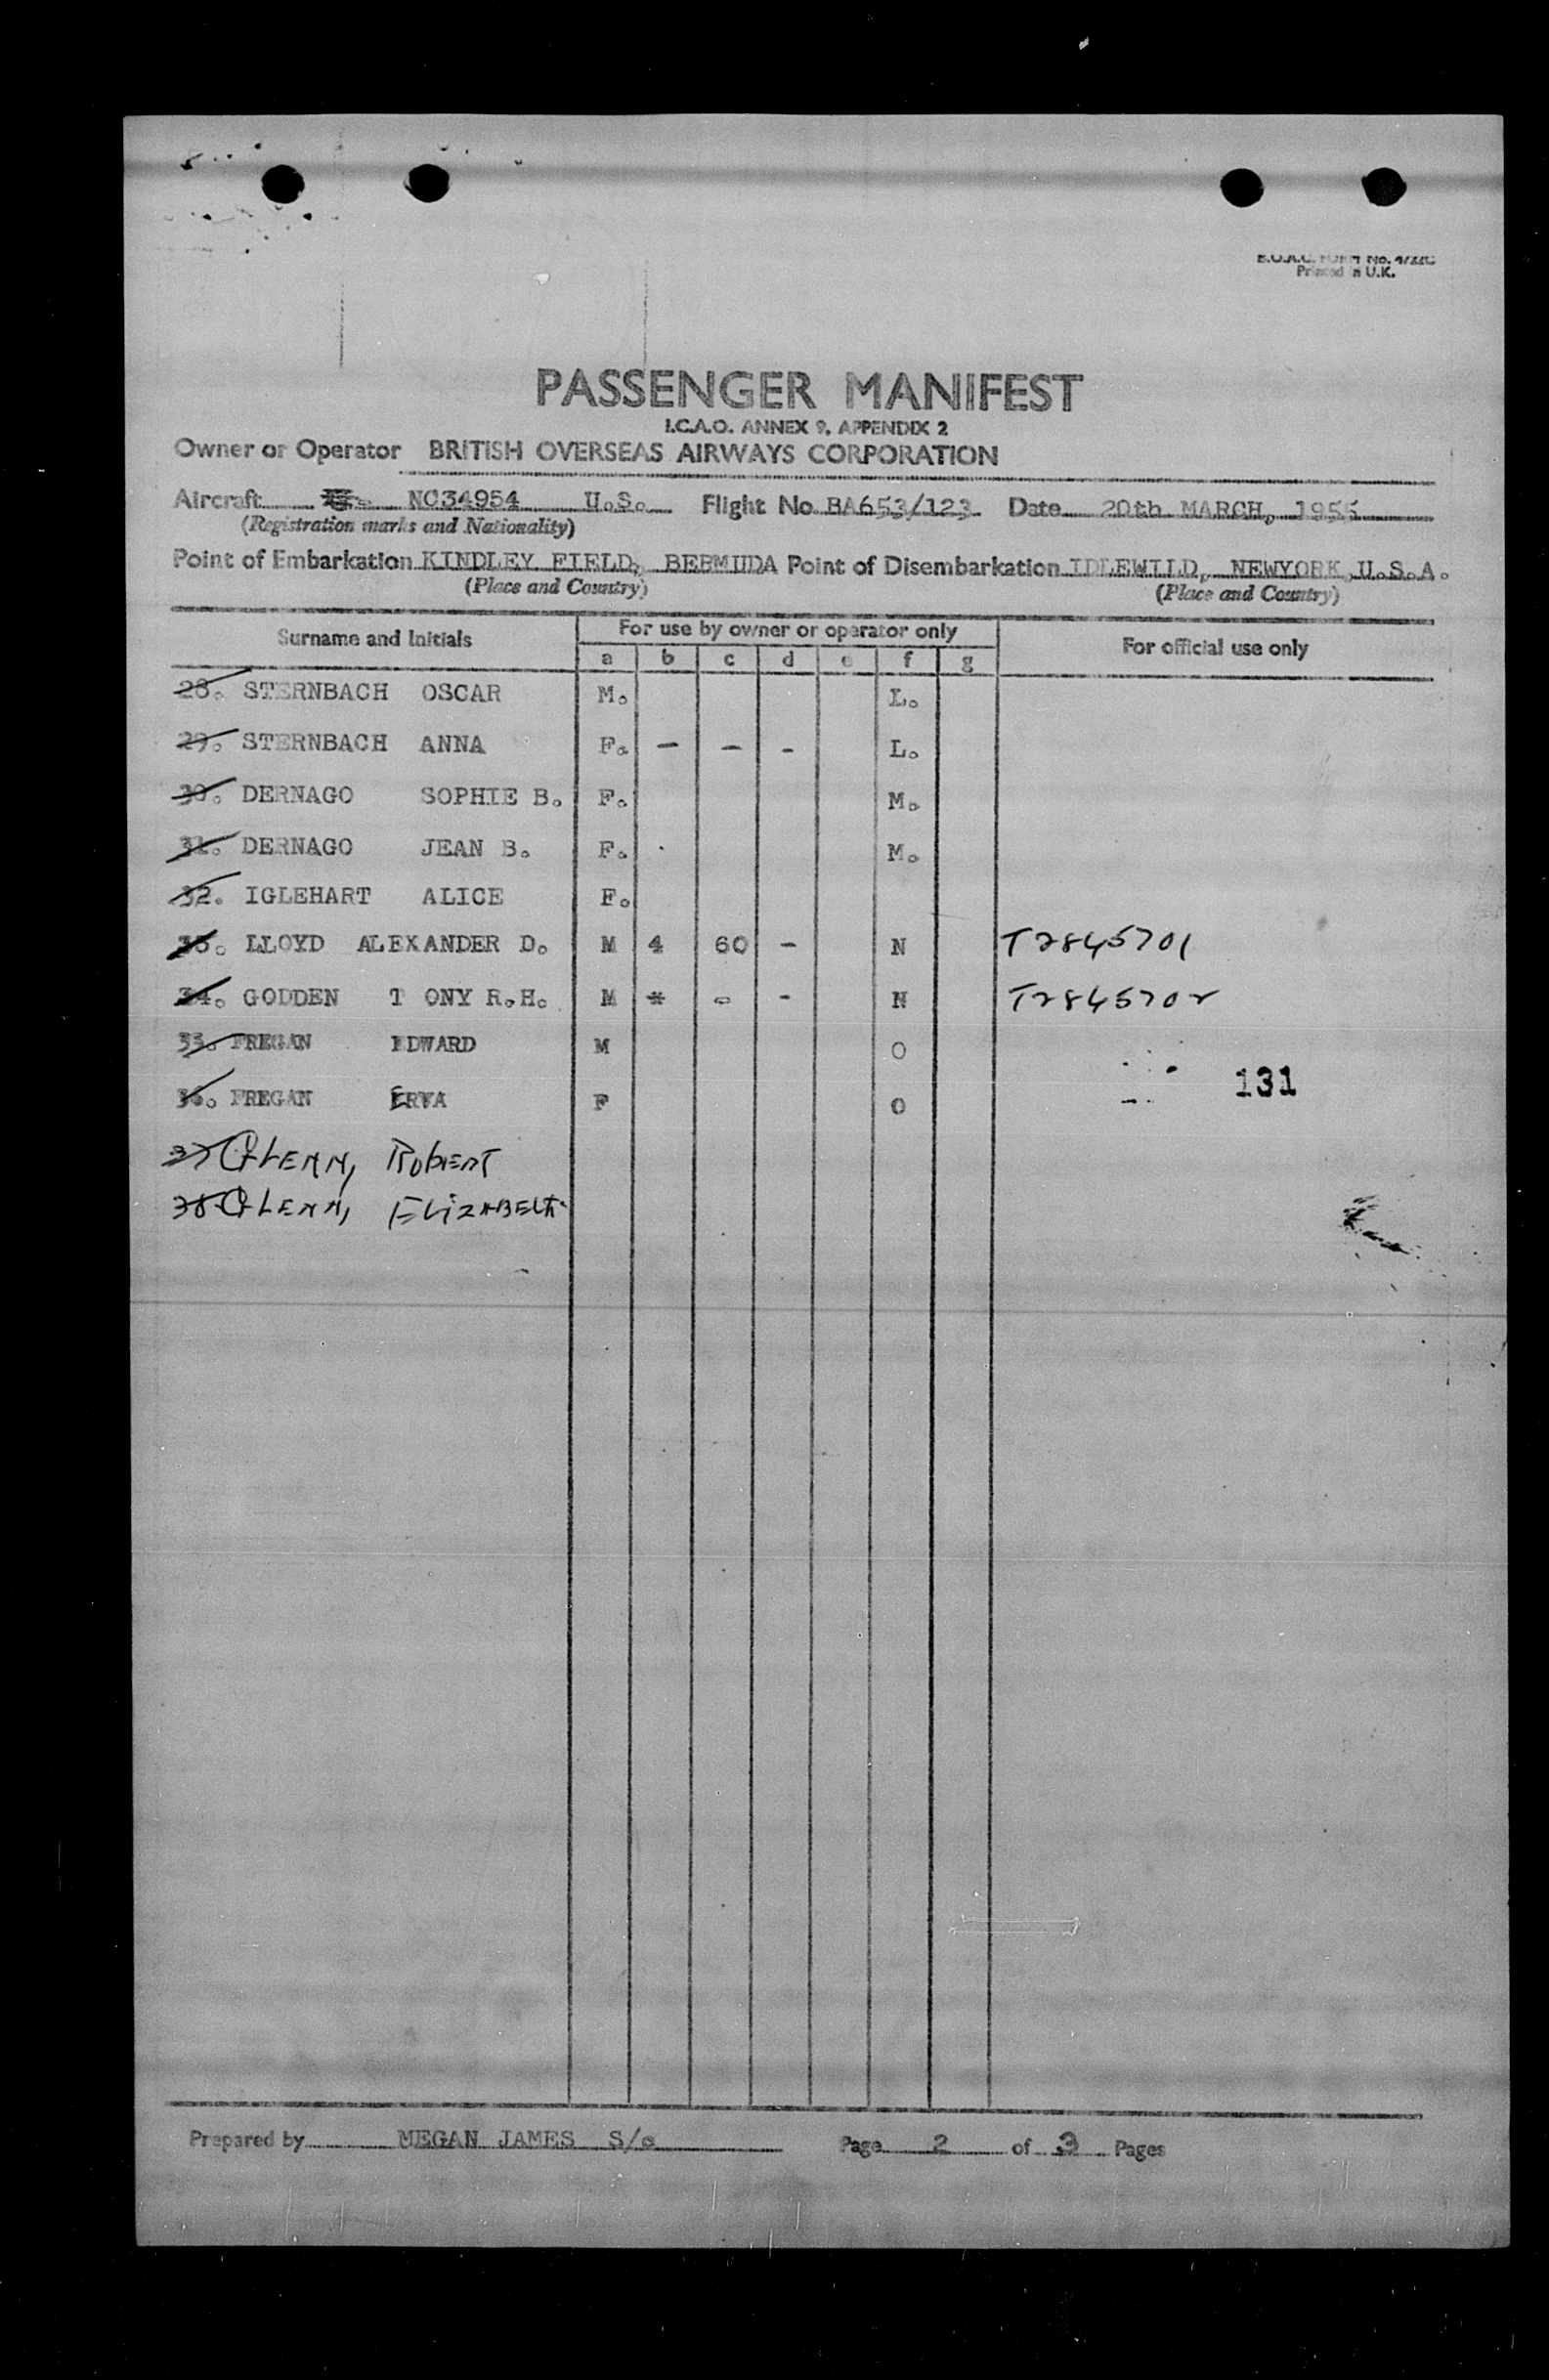 Printed in U.K.
PASSENGER MANIFEST
I.C.A.O. ANNEX 9, APPENDIX 2
Owner or Operator BRITISH OVERSEAS AIRWAYS CORPORATION
Aircraft NC34954 U.S. Flight No. BA653/123 Date 20th MARCH, 1955
(Registration marks and Nationality)
Point of Embarkation KINDLEY FIELD, BERMUDA Point of Disembarkation IDLEWILD, NEWYORK, U.S.A.
(Place and Country) (Place and Country)
Surname and Initials For use by owner or operator only For official use only
a b c d e f g
28. STERNBACH OSCAR M. L.
29. STERNBACH ANNA F. - - - L.
30. DERNAGO SOPHIE B. F. M.
31. DERNAGO JEAN B. F. M.
32. IGLEHART ALICE F.
33. LLOYD ALEXANDER D. M 4 60 - N T2845701
34. GODDEN T ONY R.H. M * - - N T2845702
35. FREGAN EDWARD M O
36. FREGAN F O
131
37 GLENN, ROBERT
38 GLENN, ELIZABETH
Prepared by MEGAN JAMES S/s Page 2 of 3 Pages